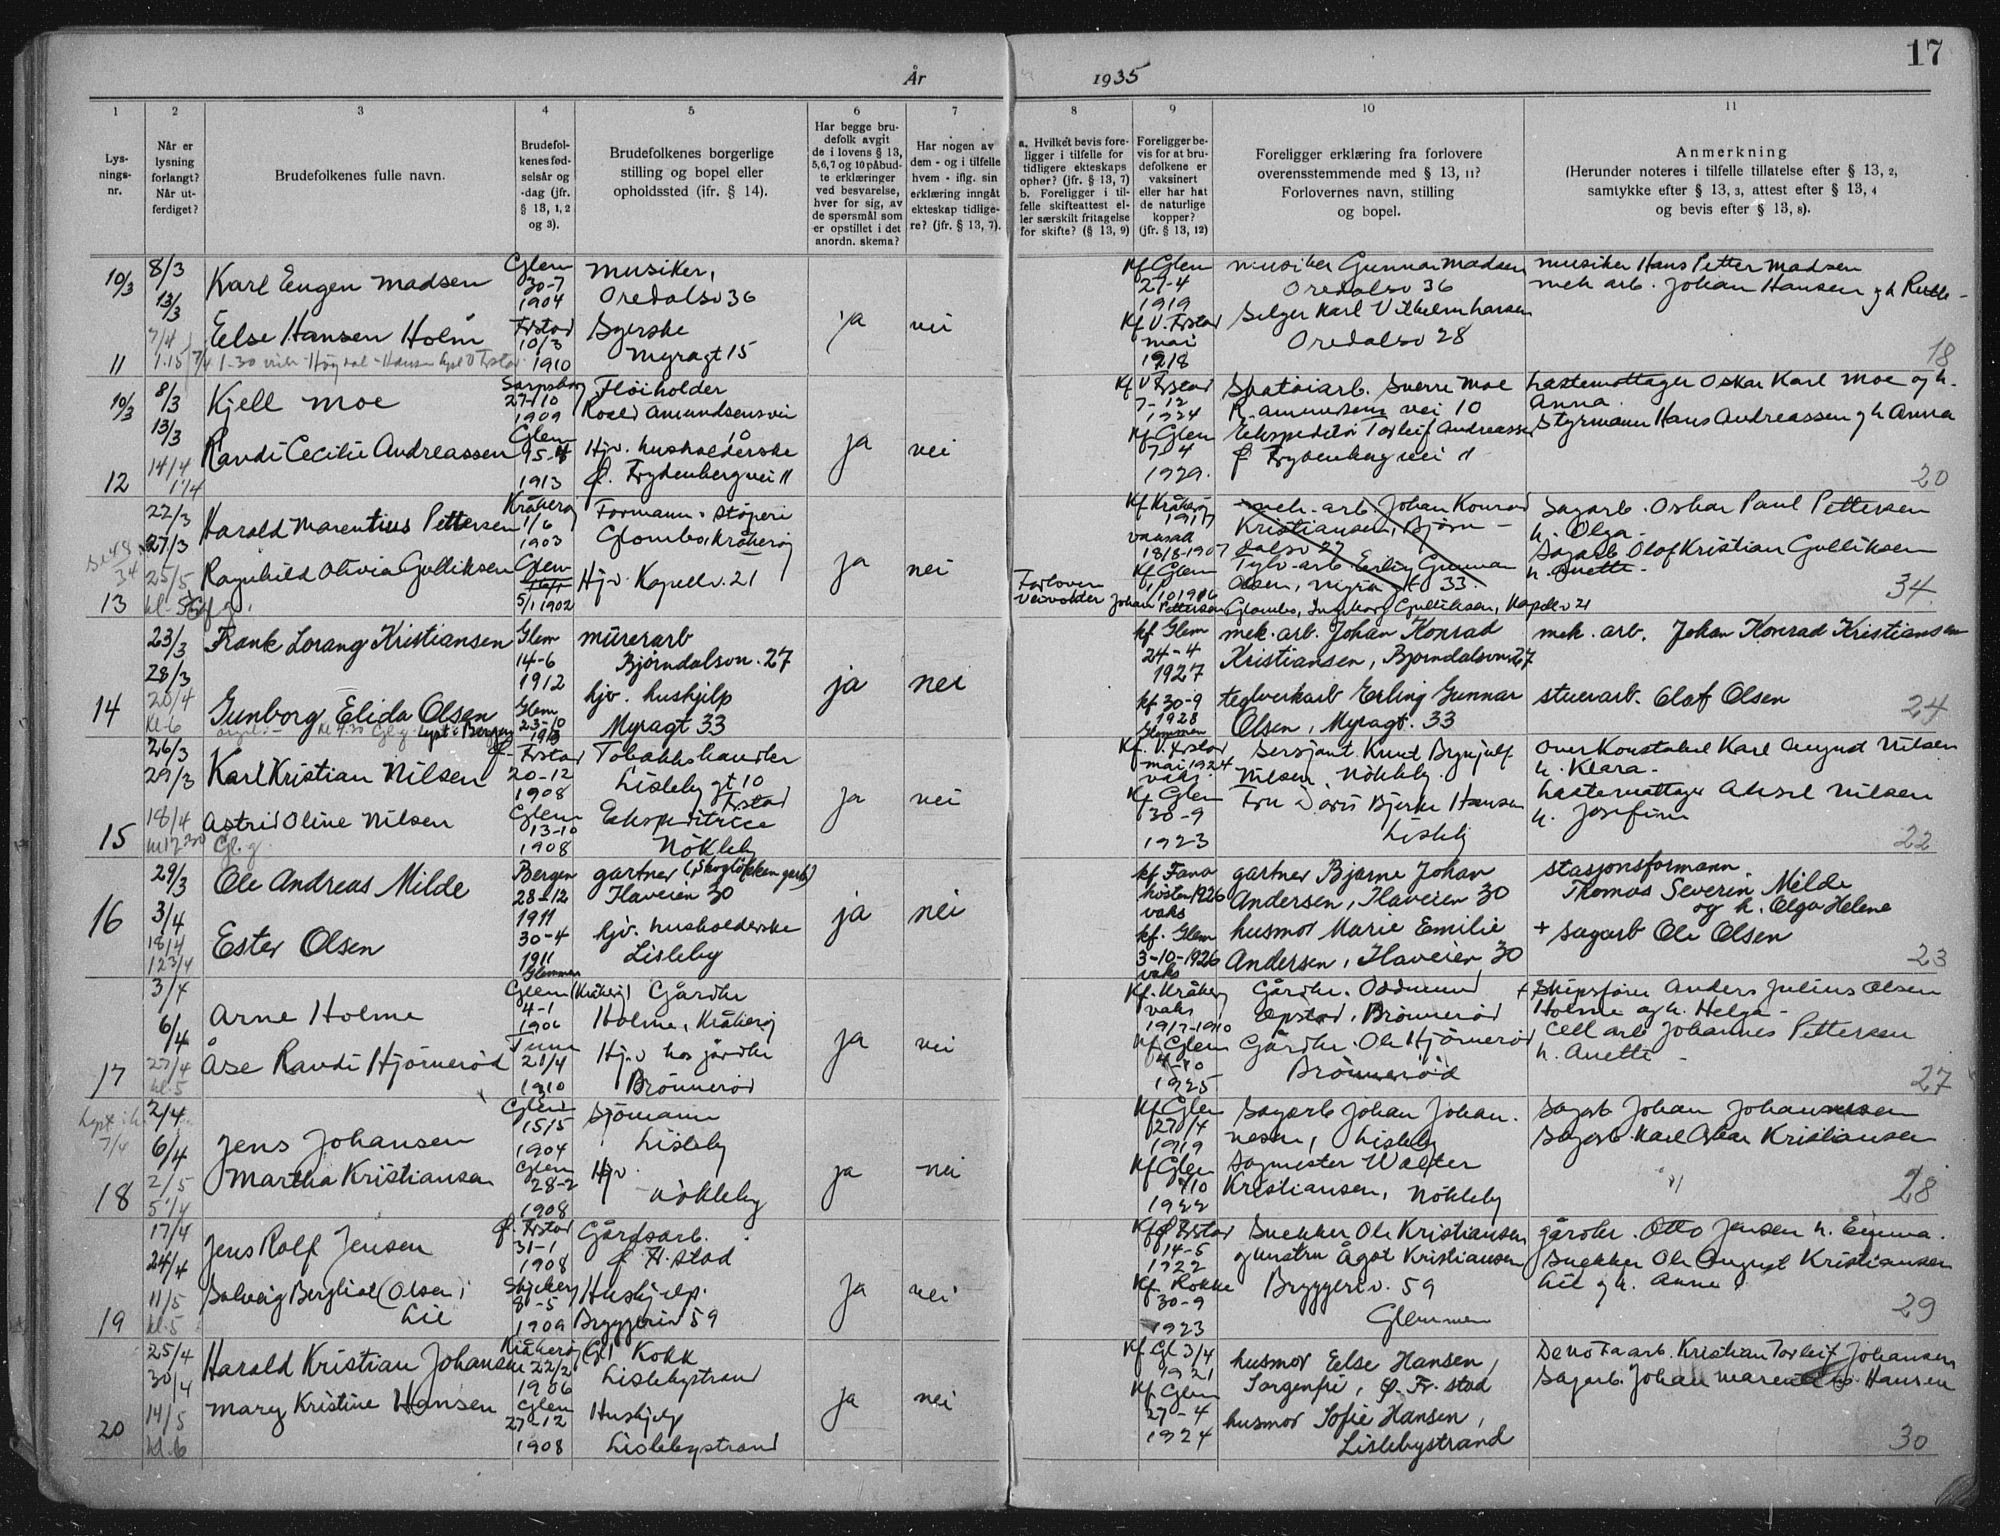 17
År 1935
1
2
3
4
5
6
7
8
9
10
11
Lys-
nings-
nr.
Når er
lysning
forlangt?
Når ut-
ferdiget?
Brudefolkenes fulle navn.
Brudefol-
kenes fød-
selsår og
-dag (jfr.
§ 13, 1, 2
og 3).
Brudefolkenes borgerlige
stilling og bopel eller
opholdssted (jfr. § 14).
Har begge bru-
defolk avgit
de i lovens § 13,
5, 6, 7 og 10 påbud-
te erklæringer
ved besvarelse,
hver for sig, av
de spørsmål som
er opstillet i det
anordn. skema?
Har nogen av
dem - og i tilfelle
hvem - iflg. sin
erklæring inngått
ekteskap tidlige-
re? (jfr. § 13, 7).
a. Hvilket bevis fore-
ligger i tilfelle for
tidligere ekteskaps
ophør? (jfr. § 13, 7)
b. Foreligger i til-
felle skifteattest el-
ler særskilt fritagelse
for skifte? (§ 13, 9)
Foreligger be-
vis for at bru-
defolkene er
vaksinert
eller har hat
de naturlige
kopper?
(jfr. § 13, 12)
Foreligger erklæring fra forlovere
overensstemmende med § 13, 11?
Forlovernes navn, stilling
og bopel.
Anmerkning
(Herunder noteres i tilfelle tillatelse efter § 13, 2,
samtykke efter § 13, 3, attest efter § 13, 4
og bevis efter § 13, 8).
10/3
11
8/3
13/3
7/4
Karl Eugen Madsen
Else Hansen Holm
Glem
30-7
1904
Frstad
10/3
1910
musiker,
Oredalsv 36
Syerske
Myragt 15
ja
nei
Kf Glem
27-4
1919
Kf V. Frstad
mai
1918
musiker Gunnar Madsen
Oredalsv 36
Selger Karl Vilhelm Hansen
Oredalsv 28
musiker Hans Petter Madsen
mek arb. Johan Hansen og h
18
10/3
12
8/3
13/3
14/4
Kjell Moe
Randi Cecilie Andreassen
Sarpsborg
27-10
1909
Glem
1913
Fløiholder
Roald Amundsens vei
10
Hjv. husholderske
Ø. Frydenbergvei 11
ja
nei
Kf V Frstad
7-12
1924
Kf Glem
7-4
1929.
Skotøiarb. Sverre Moe
R. Amundsens vei 10
Ekspeditør Torleif Andreassen
Ø Frydenberg vei 11
Lastemottager Oskar Karl Moe og h.
Anna.
Styrmann Hans Andreassen og h Anna
20
13
22/3
27/3
25/5
Harald Marentius Pettersen
Ragnhild Olivia Gulliksen
Kråkerøy
1/6
1903
Glem
5/1 1902
Formann i støperi
Glombo, Kråkerøy
Hjv. Kapellv. 21
ja
nei
Forlovere
Kf Kråkerøy
1917
18/8-1907
Kf Glem
1/10 1916
mek. arb. Johan Konrad
Kristiansen, Bjørn-
dalsv 27
Tglv-arb Erling Gunnar
Olsen, Myragt 33.
Johan Pettersen Glombo, Ingeborg Gulliksen, Kapellv 21
Sagarb. Oskar Paul Pettersen
h. Olga.
Sagarb Olaf Kristian Gulliksen
h. Anette.
34.
14
23/3
28/3
20/4
kl-6
Frank Lorang Kristiansen
Gunborg Elida Olsen
Glem
14-6
1912
Glem
23-10
1913
murerarb
Bjørndalsvn. 27
hjv. hushjelp
Myragt 33
ja
nei
kf Glem
24-4
1927
kf 30-9
1928
Glemmen
mek. arb. Johan Konrad
Kristiansen, Bjørndalsvn 27
teglverkarb Erling Gunnar
Olsen, Myragt. 33
mek. arb. Johan Konrad Kristiansen
stuerarb. Olaf Olsen
24
15
26/3
29/3
18/4
Karl Kristian Nilsen
Astrid Oline Nilsen
Gl. g.
Ø-Frstad
20-12
1908
Glem
13-10
1908
Tobakkshandler
Lisleby gt 10
Frstad
Ekspeditrice
Nökleby
ja
nei
Kf. V. Frstad
mai 1924
vaks.
Kf Glem
30-9
1923
Sersjant Knut Brynjulf
Nilsen Nökleby.
Fru Doris Bjerke Hansen
Lisleby
Overkonstabel Karl August Nilsen
h. Klara.
Lastemottager Aksel Nilsen
h. Josefine
22
16
29/3
3/4
18/4
Ole Andreas Milde
Ester Olsen
Bergen
28-12
1911
30-4
1911
Glemmen
gartner (Skogløkken gartn)
Haveien 30
hjv. husholderske
Lisleby
ja
nei
kf Fana
høsten 1926
vaks
kf. Glem
3-10-1926
vaks
gartner Bjarne Johan
Andersen, Haveien 30
husmor Marie Emilie
Andersen, Haveien 30
stasjonsformann.
Thomas Severin Milde
og h. Olga Helene
+ sagarb Ole Olsen
23
17
3/4
6/4
27/4
kl. 5
Arne Holme
Åse Randi Hjörnerød
Glem (Kråkerøy)
4-1
1906
Tune
21/4
1910
Gårdbr
Holme, Kråkerøy
Hjv hos gårdbr
Brönnerød
ja
nei
Kf. Kråkerøy
vaks
1917-1910
Kf Glem
4-10
1925
Gårdbr. Oddmund
Opstad, Brönnerød
Gårdbr. Ole Hjörnerød
Brönnerød
+ Skipsfører Anders Julius Olsen
Holme og h. Helga
Cell arb Johannes Pettersen
h. Anette
27
7/4
18
2/4
6/4
2/5
Jens Johansen
Martha Kristiansen
Glem
15/5
1904
Glem
28-2
1908
Sjömann
Lisleby
Hjv
Nökleby
ja
nei
Kf Glem
27/4
1919
Kf Glem
1/10
1922
Sagarb Johan Johan.
nesen, Lisleby
Sagmester Walter
Kristiansen, Nökleby
Sagarb Johan Johannesen
Sagarb. Karl Oskar Kristiansen
28
19
17/4
24/4
11/5
kl. 5
Jens Rolf Jensen
Solveig Bergliot (Olsen)
Lie
Ø. Frstad
31-1
1908
Skjeberg
8-5
1909
Gårdsarb.
Ø Fr. stad
Hushjelp.
Bryggeriv 59
ja
nei
Kf Ø Frstad
14-5
1922
Kf. Rokke
30-9
1923
Snekker Ole Kristiansen
og hustru Ågot Kristiansen
Bryggeriv. 59
Glemmen
gårdbr. Otto Jensen h. Emma.
Snekker Ole August Kristiansen
Lie og h. Anna
29
20
25/4
30/4
14/5
kl. 6
Harald Kristian Johansen
Mary Kristine Hansen
Kråkerøy
22/2
1906
Glem
27-12
1908
Kokk
Lislebystrand
Hushjelp
Lislebystrand
ja
nei
Kf. Gl 3/4
1921
Kf Glem
27-4
1924
husmor Else Hansen,
Sorgenfri, Ø. Fr. stad
husmor Sofie Hansen,
Lislebystrand
De No Fa arb. Kristian Torleif Johansen
Sagarb. Johan Marentius Hansen
30